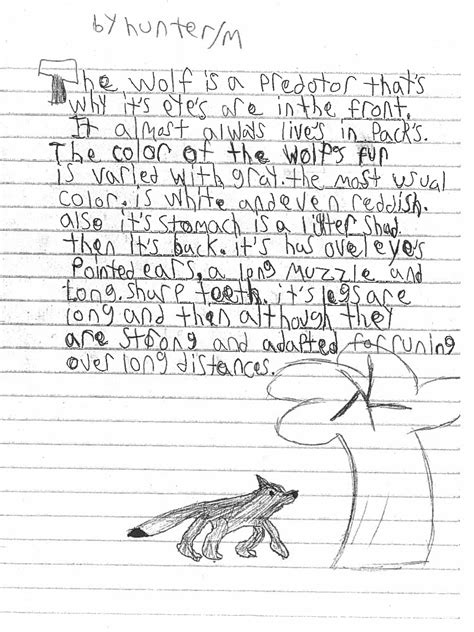 by hunter/m
The wolf is a predotor that's
why it's eye's are in the front.
It almost always live's in Pack's.
The color of the wolf's fur
is varied with gray. the most usual
color. is white and even reddish.
also it's stomach is a litter shad.
then it's back. it's has ovel eye's
Pointed ears, a long muzzle and
Long. sharp teeth. it's legs are
long and then although they
are strong and adapted for runing
over long distances.